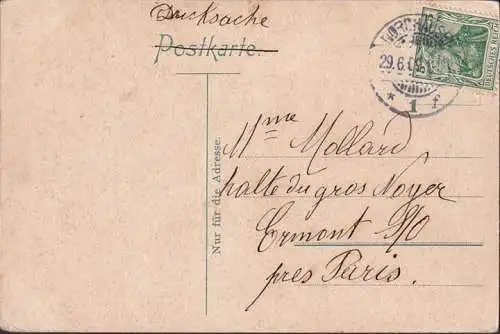 Drucksache
Postkarte.
29.6.09.
* 1 f
DEUTSCHES REICH
Nur für die Adresse.
Mme Mollard
halte du gros Noyer
Ermont S/O
près Paris.